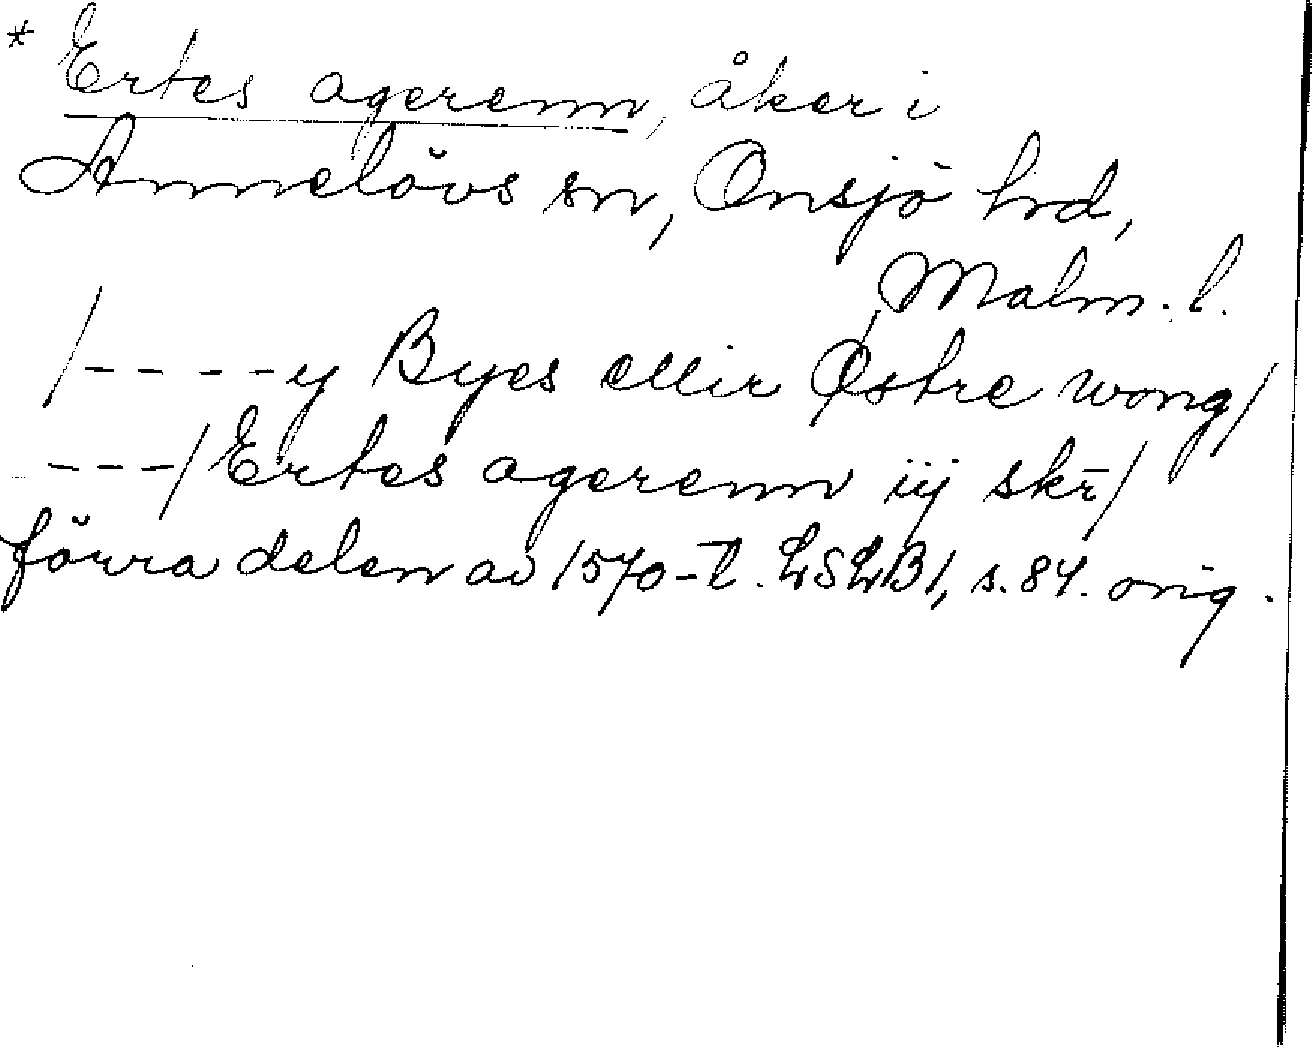 * Ertes agerenn, åker i
Annelövs sn, Onsjö hrd,
Malm. l.
/----y Byes ellir Østre wong/
---/Ertes agerenn iij skr̄/
förra delen av 1570-t. LSLB1, s. 84. orig.